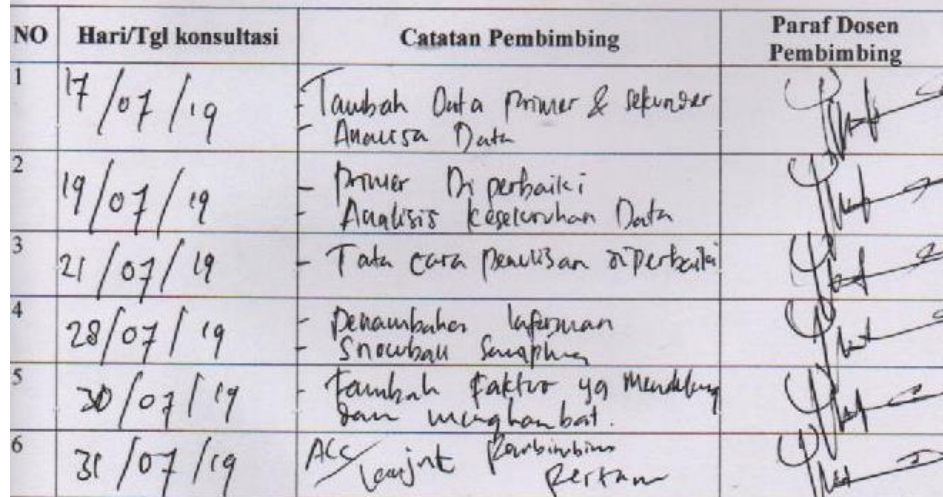 NO Hari/Tgl konsultasi Catatan Pembimbing Paraf Dosen Pembimbing
1 17/07/19 - Tambah Data primer & sekunder
- Analisa Data
2 19/07/19 - Primer Di perbaiki
- Analisis keseluruhan Data
3 21/07/19 - Tata cara penulisan diperbaiki
4 28/07/19 - Penambahan Informan
Snowball Sampling
5 30/07/19 - Tambah faktor yg mendukung
dan menghambat.
6 31/07/19 ACC/lanjut Pembimbing
Pertama